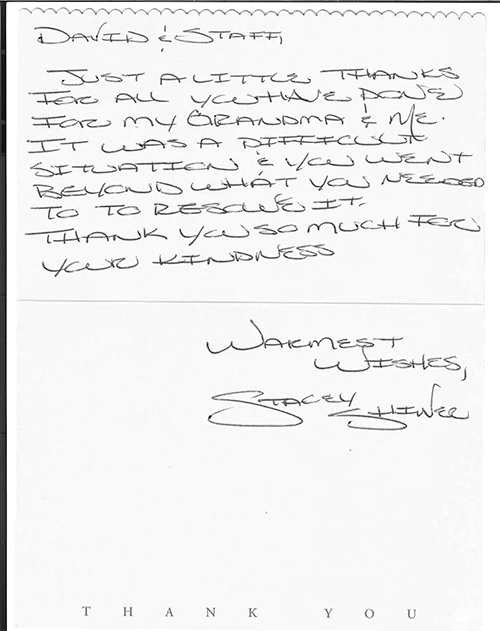 DAVID & STAFF,
JUST A LITTLE THANKS
FOR ALL YOU HAVE DONE
FOR MY GRANDMA & ME.
IT WAS A DIFFICULT
SITUATION & YOU WENT
BEYOND WHAT YOU NEEDED
TO TO RESOLVE IT.
THANK YOU SO MUCH FOR
YOUR KINDNESS
WARMEST
WISHES,
STACEY SHINER
THANK YOU